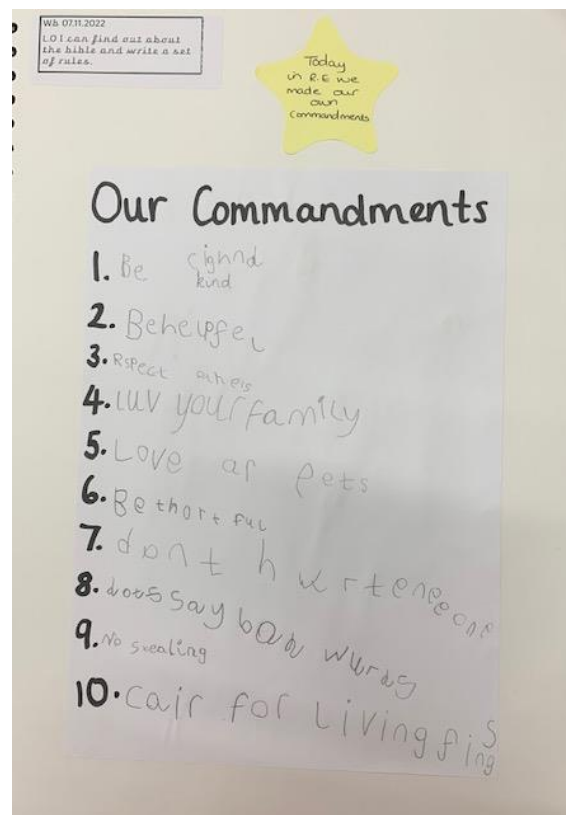 Wb 07.11.2022
LO I can find out about
the bible and write a set
of rules.
Today
in R.E we
made our
own
Commandments
Our Commandments
1. Be cighnd
kind
2. Beheupfel
3. Rspect others
4. Luv your family
5. Love ar pets
6. Be thortful
7. dont hurteneeone
8. dots say bad wurds
9. No stealing
10. Cair for Living fings